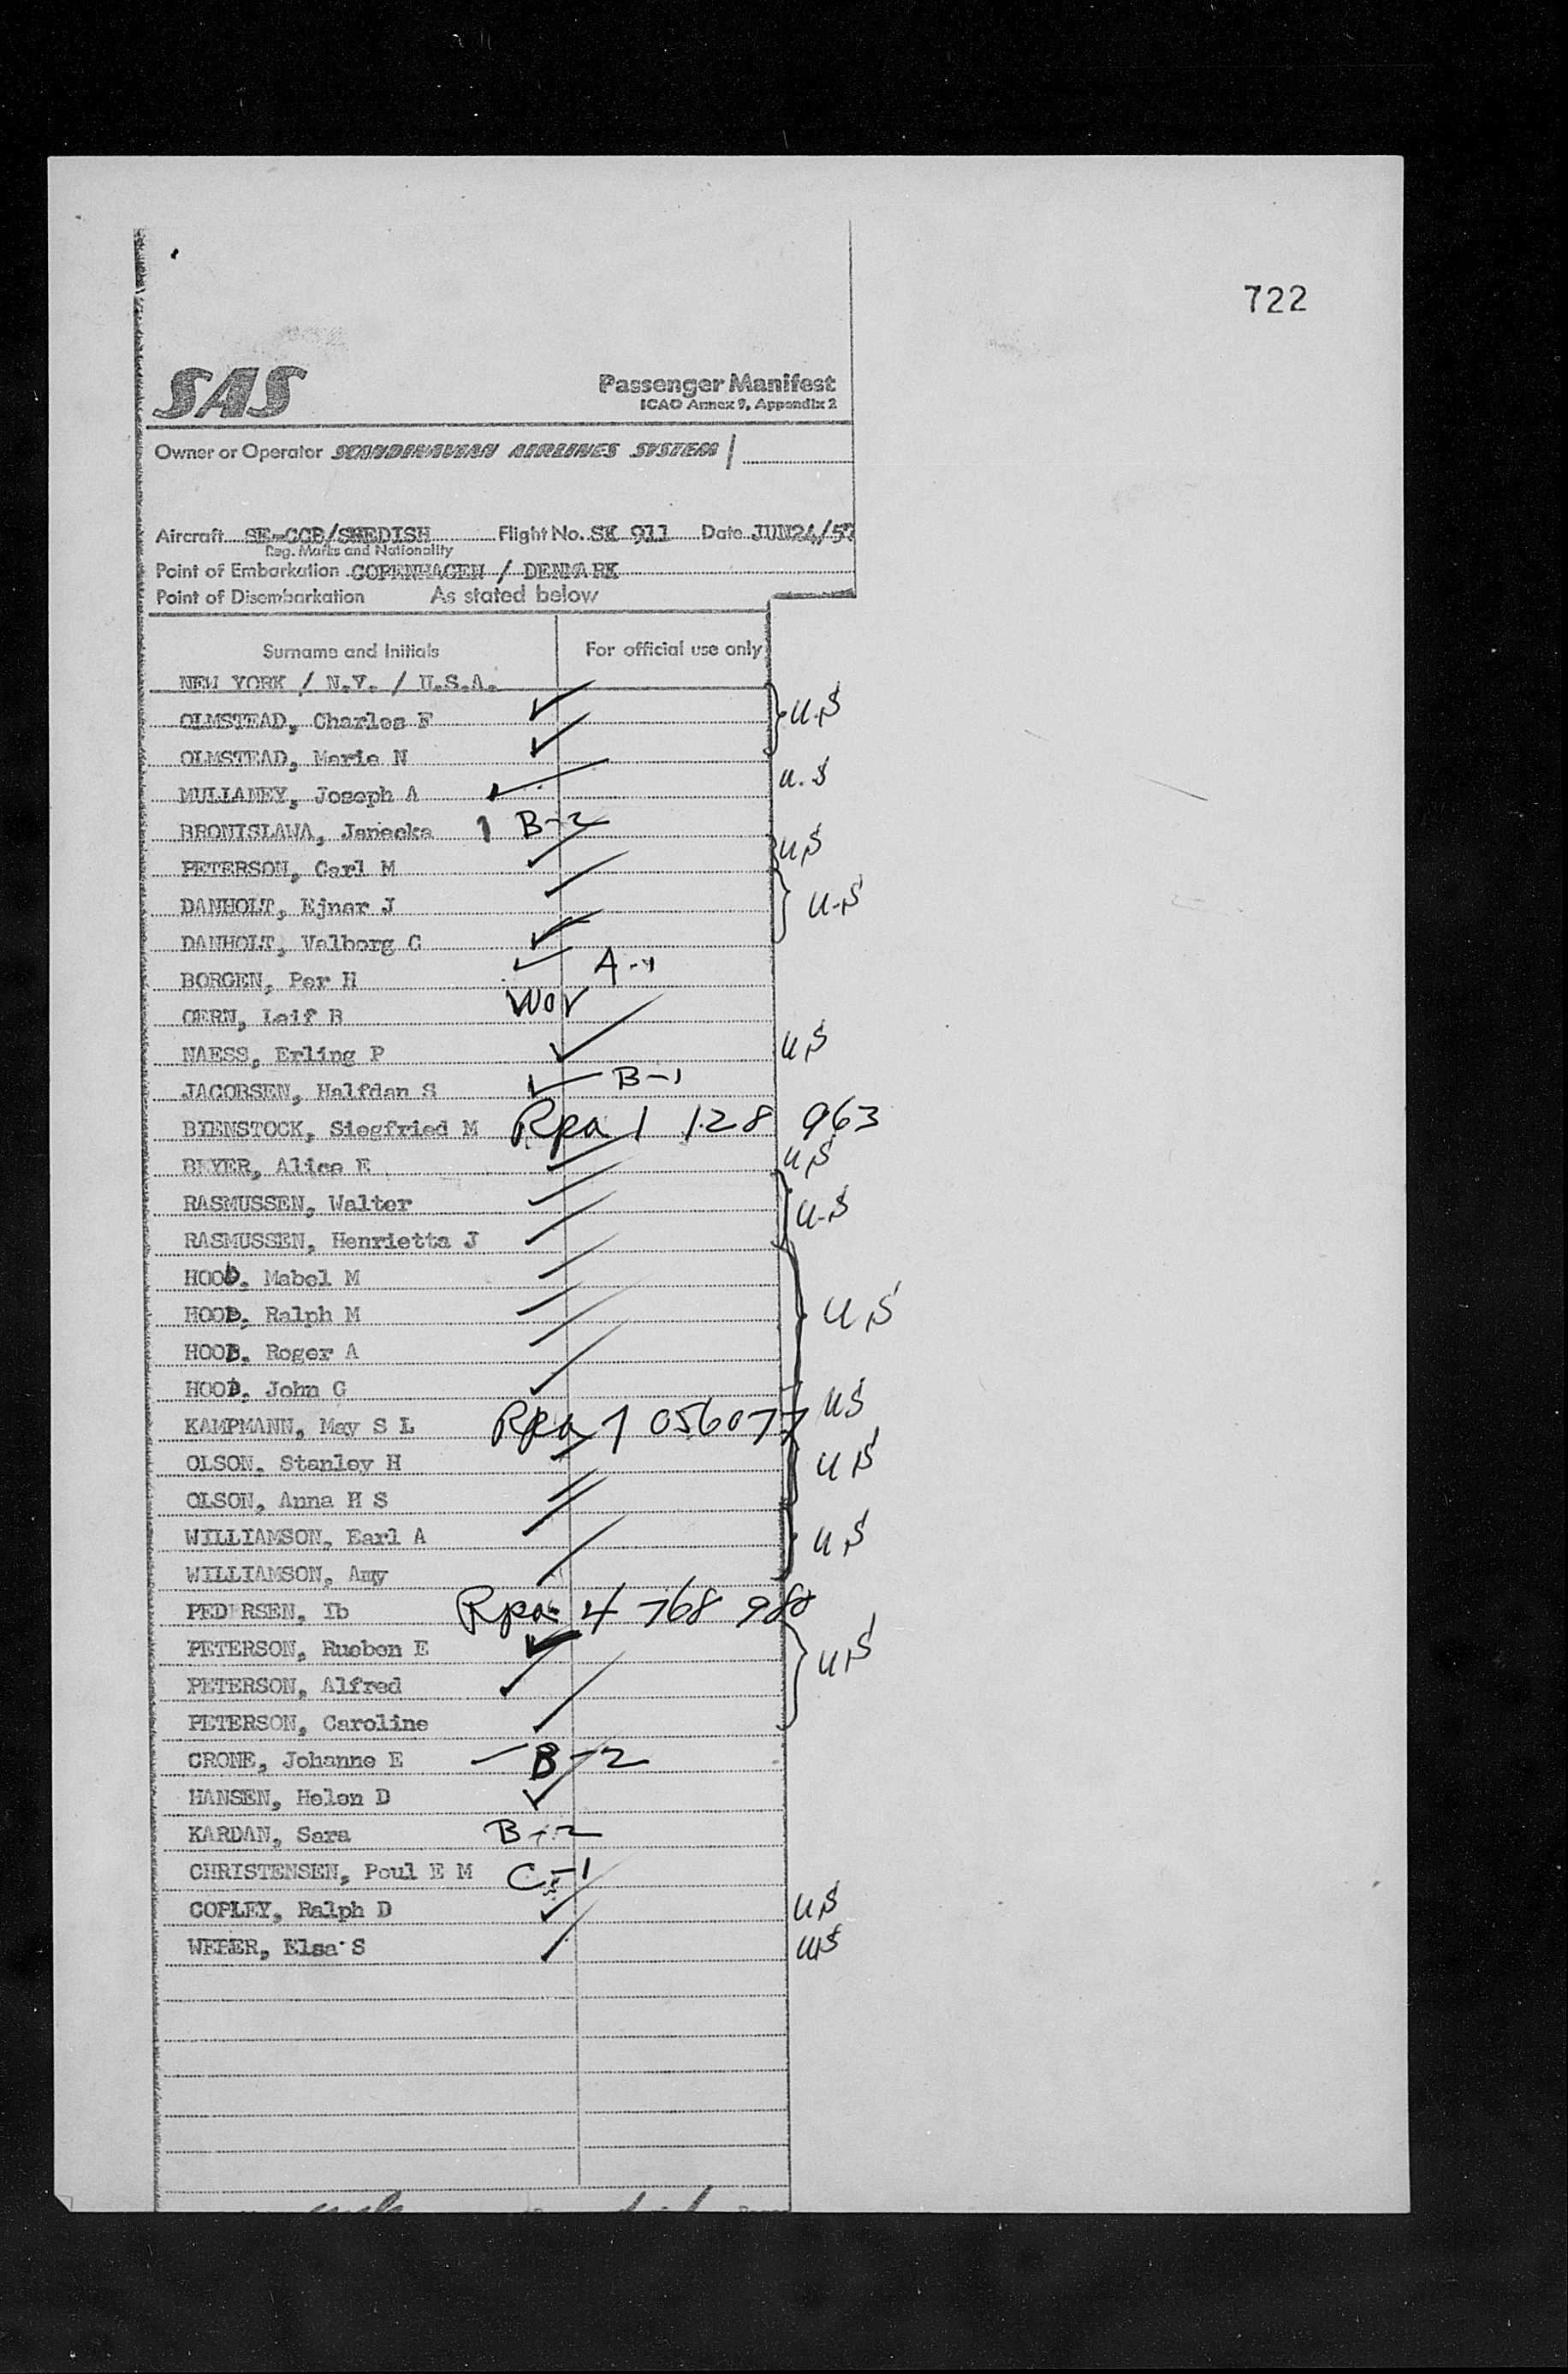 722
SAS
Passenger Manifest
ICAO Annex 9, Appendix 2
Owner or Operator SCANDINAVIAN AIRLINES SYSTEM
Aircraft SE-CCB/SWEDISH Flight No. SK 911 Date JUN24/57
Reg. Marks and Nationality
Point of Embarkation COPENHAGEN / DENMARK
Point of Disembarkation As stated below
Surname and Initials For official use only
NEW YORK / N.Y. / U.S.A.
OLMSTEAD, Charles F U.S
OLMSTEAD, Marie N
MULLANEY, Joseph A U.S
BRONISLAWA, Janecka 1 B-2
PETERSON, Carl M U.S
DANHOLT, Ejner J U.S
DANHOLT, Valborg C
BORGEN, Per H A-1
OERN, Leif B
NAESS, Erling P U.S
JACOBSEN, Halfdan S B-1
BIENSTOCK, Siegfried M Rpa 1 128 963
BEYER, Alice E U.S
RASMUSSEN, Walter U.S
RASMUSSEN, Henrietta J
HOOD. Mabel M
HOOD. Ralph M U.S
HOOD. Roger A
HOOD. John G US
KAMPMANN, May S L Rpa 7 056077
OLSON. Stanley H U.S
OLSON, Anna H S
WILLIAMSON, Earl A U.S
WILLIAMSON, Amy
PEDERSEN, Ib Rpa 4 768 980
PETERSON, Rueben E U.S
PETERSON, Alfred
PETERSON, Caroline
CRONE, Johanne E B-2
HANSEN, Helen D
KARDAN, Sara B-2
CHRISTENSEN, Poul E M C-1
COPLEY, Ralph D U.S
WEBER, Elsa S U.S